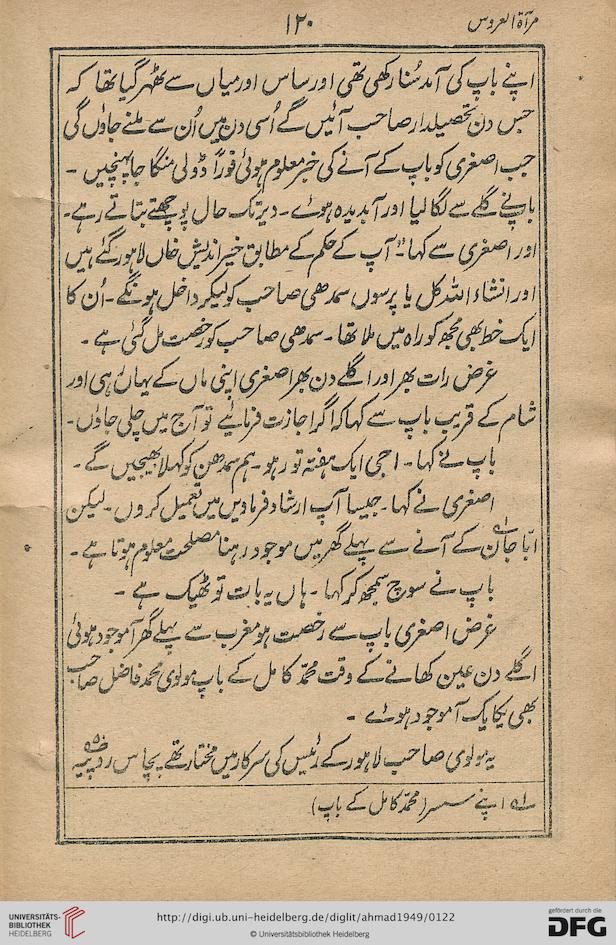 مرآۃ العروس
۱۲۰
اپنے باپ کی آمد سُنا رکھی تھی اور ساس اور میاں سے ٹھہر گیا تھا کہ
جس دن تحصیلدار صاحب آئیں گے اُسی دن میں اُن سے ملنے جاؤں گی
جب اصغری کو باپ کے آنے کی خبر معلوم ہوئی فوراً ڈولی منگا جا پہنچیں ۔
باپ نے گلے سے لگا لیا اور آبدیدہ ہوئے ۔ دیر تک حال پوچھتے بتاتے رہے ۔
اور اصغری سے کہا ۔ "آپ کے حکم کے مطابق خیر اندیش خاں لاہور گئے ہیں
اور انشاء اللہ کل یا پرسوں سمدھی صاحب کو لیکر داخل ہونگے ۔ اُن کا
ایک خط بھی مجھ کو راہ میں ملا تھا ۔ سمدھی صاحب کو رخصت مل گئی ہے ۔
غرض رات بھر اور اگلے دن بھر اصغری اپنی ماں کے یہاں رہی اور
شام کے قریب باپ سے کہا کہ اگر اجازت فرمائیے تو آج میں چلی جاؤں ۔
باپ نے کہا ۔ اجی ایک ہفتہ تو رہو ۔ ہم سمدھن کو کہلا بھیجیں گے ۔
اصغری نے کہا ۔ جیسا آپ ارشاد فرمادیں میں تعمیل کروں ۔ لیکن
ابّا جان لہ کے آنے سے پہلے گھر میں موجود رہنا مصلحت معلوم ہوتا ہے ۔
باپ نے سوچ سمجھ کر کہا ۔ ہاں یہ بات تو ٹھیک ہے ۔
غرض اصغری باپ سے رخصت ہو مغرب سے پہلے گھر آموجود ہوئی
اگلے دن عین کھانے کے وقت محمّد کامل کے باپ مولوی محمد فاضل صاحب
بھی یکایک آموجود ہوئے ۔
یہ مولوی صاحب لاہور کے رئیس کی سرکار میں مختار تھے ۔ پچاس روپیہ
لہ اپنے سسر (محمّد کامل کے باپ)
UNIVERSITÄTS-
BIBLIOTHEK
HEIDELBERG
http://digi.ub.uni-heidelberg.de/diglit/ahmad1949/0122
© Universitätsbibliothek Heidelberg
gefördert durch die
DFG